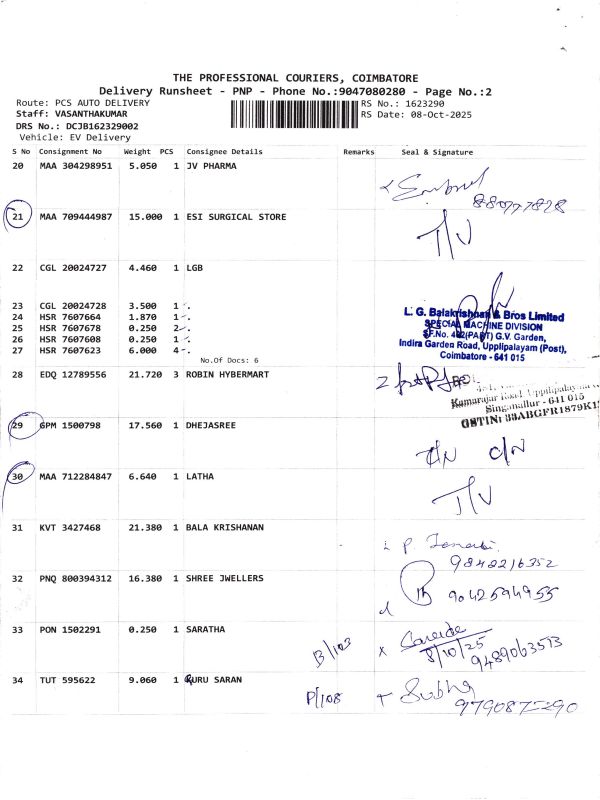 THE PROFESSIONAL COURIERS, COIMBATORE
Delivery Runsheet - PNP - Phone No.:9047080280 - Page No.:2
Route: PCS AUTO DELIVERY
RS No.: 1623290
Staff: VASANTHAKUMAR
RS Date: 08-Oct-2025
DRS No.: DCJB162329002
Vehicle: EV Delivery
S No Consignment No Weight PCS Consignee Details Remarks Seal & Signature
20 MAA 304298951 5.050 1 JV PHARMA
21 MAA 709444987 15.000 1 ESI SURGICAL STORE
T/V
22 CGL 20024727 4.460 1 LGB
23 CGL 20024728 3.500 1 .
24 HSR 7607664 1.870 1 .
25 HSR 7607678 0.250 2 .
26 HSR 7607608 0.250 1 .
27 HSR 7607623 6.000 4 .
No.Of Docs: 6
L. G. Balakrishnan & Bros Limited
SPECIAL MACHINE DIVISION
SF.No. 442(PART) G.V. Garden,
Indira Garden Road, Upplipalayam (Post),
Coimbatore - 641 015
28 EDQ 12789556 21.720 3 ROBIN HYBERMART
Kamarajar Road, Uppilipalayam
Singanallur - 641 015
GSTIN: 33ABGFR1879K1
29 GPM 1500798 17.560 1 DHEJASREE
C/N
30 MAA 712284847 6.640 1 LATHA
T/V
31 KVT 3427468 21.380 1 BALA KRISHANAN
9842216352
32 PNQ 800394312 16.380 1 SHREE JWELLERS
9042594955
33 PON 1502291 0.250 1 SARATHA
B/103
8/10/25
9489063513
34 TUT 595622 9.060 1 GURU SARAN
P/108
Subha
9790877290